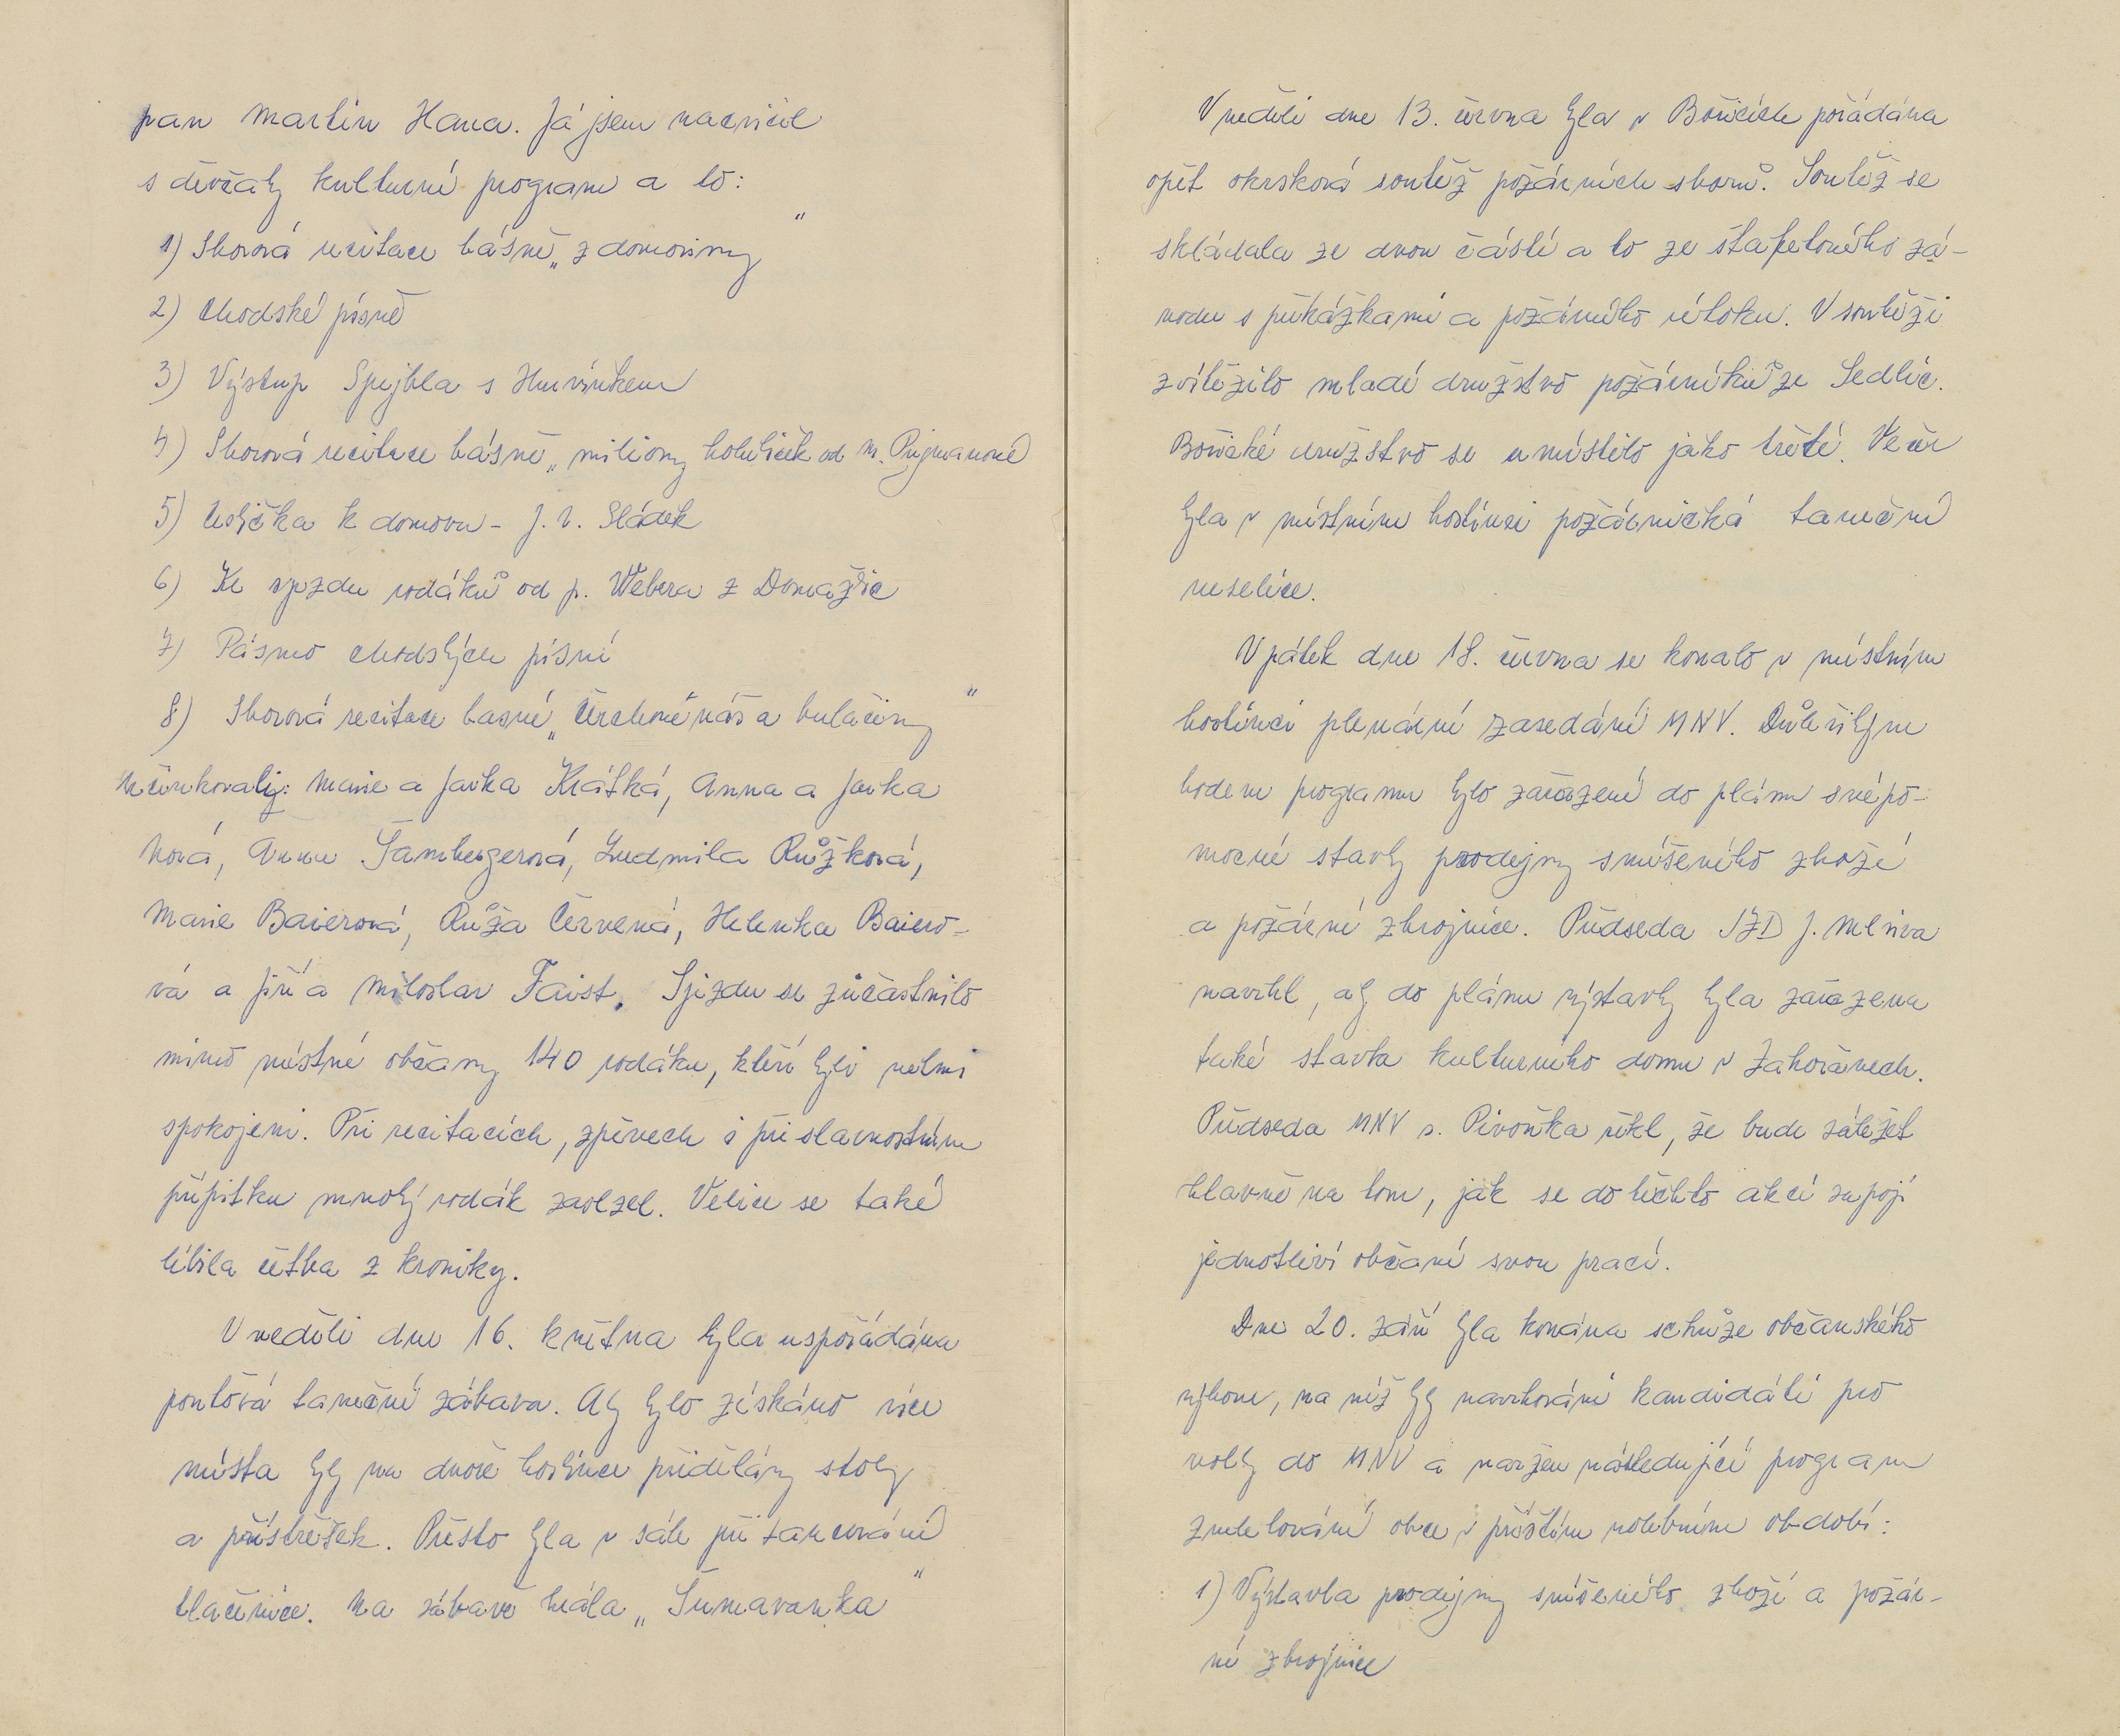 pan Martin Hana. Já jsem nacvičil
s děvčaty kulturní program a to:
1) Sborová recitace básně „z domoviny"
2) Chodské písně
3) Výstup Spejbla s Hurvínkem
4) Sborová recitace básně „miliony holubiček od M. Pujmanové
5) Uslička k domovu - J. V. Sládek
6) Ke sjezdu rodáků od p. Webra z Domažlic
7) Pásmo chodských písní
8) Sborová recitace basně „Čerchove náš a bulačiny"
účinkovaly: Marie a Jarka Krátká, Anna a Jarka
ková, Anna Šambergerová, Ludmila Růžková,
Marie Baierová, Růža Červená, Helenka Baiero-
vá a Jiří a Miloslav Faist. Sjezdu se zúčastnilo
mimo místní občany 140 rodáku, kteří byli velmi
spokojeni. Při recitacích, zpěvech i při slavnostním
přípitku mnohý rodák zaslzel. Velice se také
líbila četba z kroniky.
V neděli dne 16. května byla uspořádána
pouťová taneční zábava. Aby bylo získáno více
místa byly na dvoře hostince přidělány stoly
a přístřešek. Přesto byla v sále při tancování
tlačenice. Na zábavě hrála „Šumavanka"
V neděli dne 13. června byla v Bořicích pořádána
opět okrsková soutěž požárních sborů. Soutěž se
skládala ze dvou částí a to ze štafetového zá-
vodu s překážkami a požárního útoku. V soutěži
zvítězilo mladé družstvo požárníků ze Sedlic.
Bořické družstvo se umístilo jako třetí. Večer
byla v místním hostinci požárnická taneční
veselice.
V pátek dne 18. června se konalo v místním
hostinci plenární zasedání MNV. Důležitým
bodem programu bylo zařazení do plánu svépo-
mocné stavby prodejny smíšeného zboží
a požární zbrojnice. Předseda JZD J.
navrhl, aby do plánu výstavby byla zařazena
také stavba kulturního domu v Zahořanech.
Předseda MNV s. Pivoňka řekl, že bude záležet
hlavně na tom, jak se do těchto akcí zapojí
jednotliví občané svou prací.
Dne 20. září byla konána schůze občanského
výboru, na níž byly navrhováni kandidáti pro
volby do MNV a naržen následující program
zvelebování obce v příštím volebním období:
1) Výstavba prodejny smíšeného zboží a požár-
ní zbrojnice